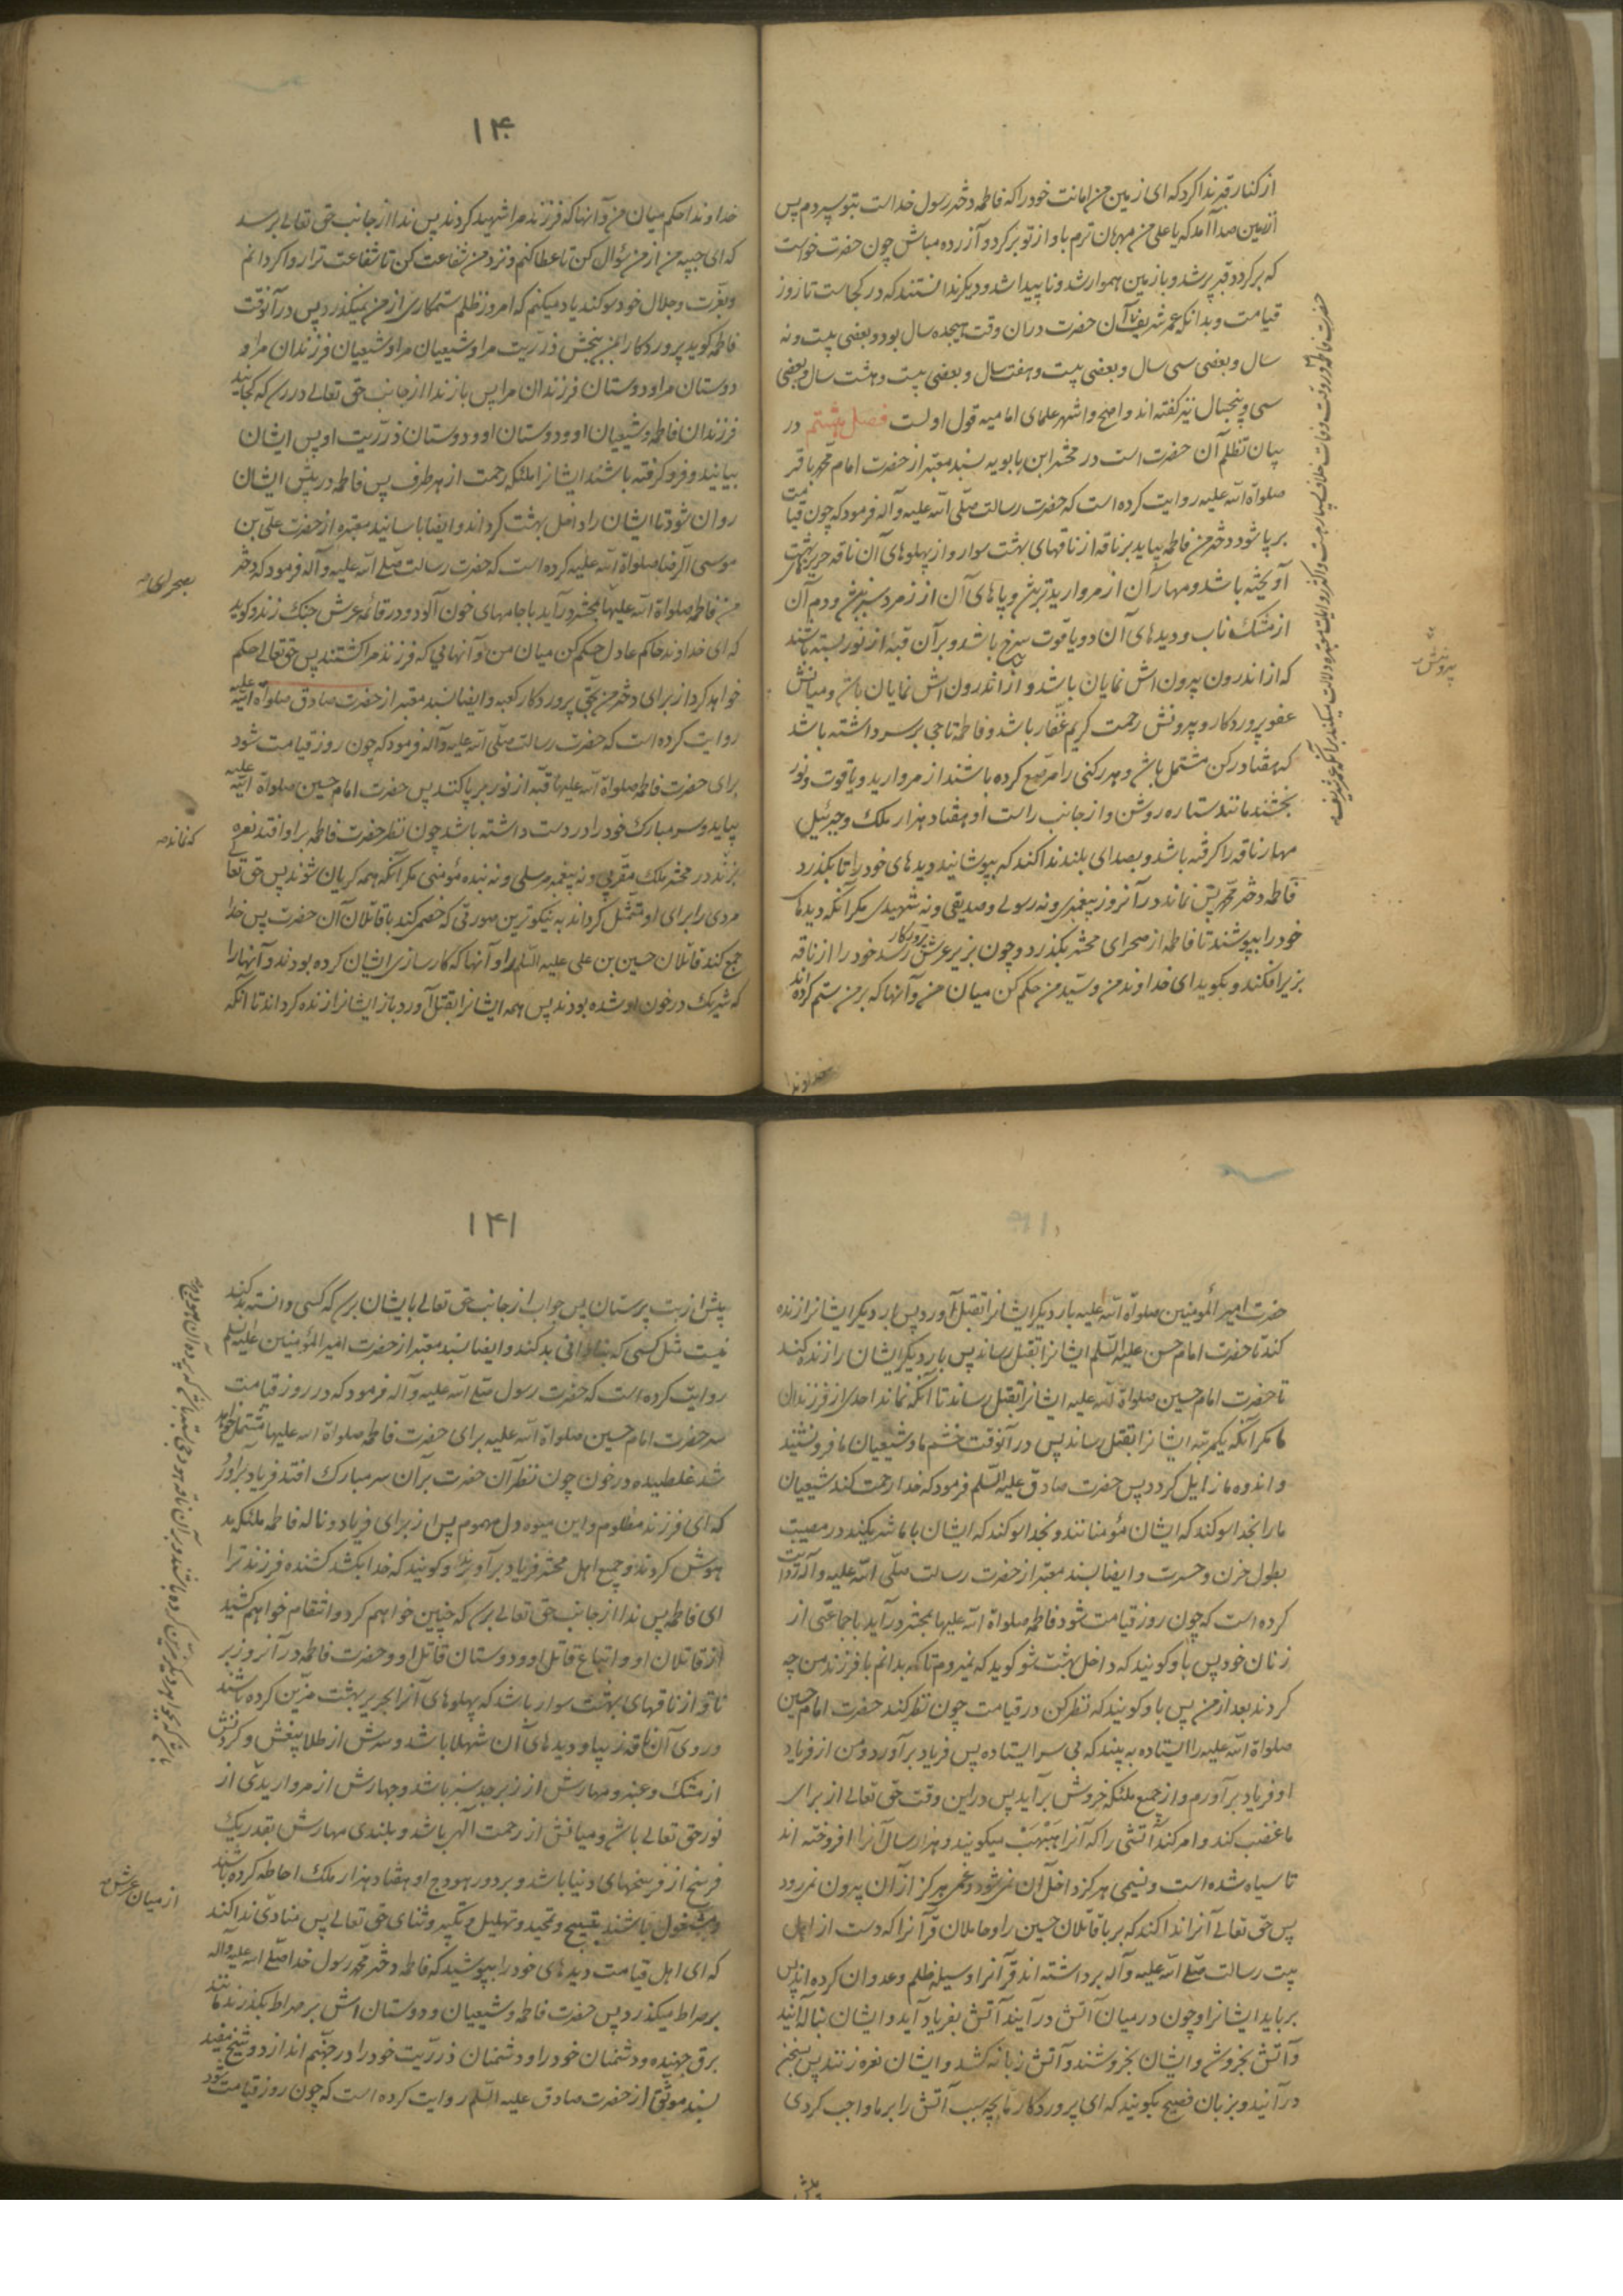 از کنار قبر ندا کرد که ای زمین من امانت خود را که فاطمه دختر رسول خداست بتو سپردم پس
از زمین صدا آمد که یا علی من مهربان ترم باو از تو برگرد و آزرده مباش چون حضرت خواست
که برگردد قبر پر شد و بازمین هموار شد و ناپیدا شد و دیگر ندانستند که در کجاست تا روز
قیامت و بدانکه عمر شریف آن حضرت در آن وقت هیجده سال بود و بعضی بیست و نه
سال و بعضی سی سال و بعضی بیست و هفت سال و بعضی بیست و هشت سال و بعضی
سی و پنجسال نیز گفته اند و اصح و اشهر علمای امامیه قول اولست فصل هشتم در
بیان تظلم آن حضرت است در محشر ابن بابویه بسند معتبر از حضرت امام محمد باقر
صلواة الله علیه روایت کرده است که حضرت رسالت صلی الله علیه و آله فرمود که چون قیامت
بر پا شود دختر من فاطمه بیاید بر ناقه از ناقهای بهشت سوار و از پهلوهای آن ناقه حریر بهشت
آویخته باشد و مهار آن از مروارید تر باشد و پاهای آن از زمرد سبز باشد و دم آن
از مشک ناب و دیدهای آن دو یاقوت سرخ باشد و بر آن قبه از نور بسته باشند
که از اندرون بیرون اش نمایان باشد و از بیرون اندرون اش نمایان باشد و میانش
عفو پروردگار و بیرونش رحمت کریم غفار باشد و فاطمه تاجی بر سر داشته باشد
که هفتاد رکن مشتمل باشد و هر رکنی را مرصع کرده باشند از مروارید و یاقوت و نور
بخشند مانند ستاره روشن و از جانب راست او هفتاد هزار ملک و جبرئیل
مهار ناقه را گرفته باشد و بصدای بلند ندا کند که بپوشانید دیدهای خود را تا بگذرد
فاطمه دختر محمد پس نماند در آنروز پیغمبری و نه رسولی و صدیقی و نه شهیدی مگر آنکه دیدهای
خود را بپوشند تا فاطمه از صحرای محشر بگذرد و چون بزیر عرش پروردگار رسد خود را از ناقه
بزیر افکند و بگوید ای خداوند من و سید من حکم کن میان من و آنها که بر من ستم کرده اند
خداوندا
۱۴۰
خداوندا حکم میان من و آنها که فرزند مرا شهید کردند پس ندا از جانب حق تعالی برسد
که ای حبیبه من از من سؤال کن تا عطا کنم و نزد من شفاعت کن تا شفاعت ترا روا گردانم
و بعزت و جلال خود سوگند یاد میکنم که امروز ظلم ستمکاری از من نمیگذرد پس در آنوقت
فاطمه گوید پروردگارا بمن ببخش ذریت مرا و شیعیان مرا و شیعیان فرزندان مرا و
دوستان مرا و دوستان فرزندان مرا پس باز ندا از جانب حق تعالی در رسد که کجایند
فرزندان فاطمه و شیعیان او و دوستان او و دوستان ذریت او پس ایشان
بیایند و فرو گرفته باشند ایشانرا ملئکه رحمت از هر طرف پس فاطمه در پیش ایشان
روان شود تا ایشان را داخل بهشت گرداند و ایضا باسانید معتبره از حضرت علی بن
موسی الرضا صلواة الله علیه کرده است که حضرت رسالت صلی الله علیه و آله فرمود که دختر
من فاطمه صلواة الله علیها بمحشر درآید با جامهای خون آلود و در قائمه عرش چنک زند و گوید
که ای خداوند حاکم عادل حکم کن میان من و آنهایی که فرزند مرا کشتند پس حق تعالی حکم
خواهد کرد از برای دختر من بحق پروردگار کعبه و ایضا بسند معتبر از حضرت صادق صلواة الله علیه
روایت کرده است که حضرت رسالت صلی الله علیه و آله فرمود که چون روز قیامت شود
برای حضرت فاطمه صلواة الله علیها قبه از نور بر پا کنند پس حضرت امام حسین صلواة الله علیه
بیاید و سر مبارک خود را در دست داشته باشد چون نظر حضرت فاطمه بر او افتد نعره
بزند در محشر ملک مقربی و نه پیغمبر مرسلی و نه بنده مؤمنی مگر آنکه همه گریان شوند پس حق تعالی
مردی را برای او متمثل گرداند به نیکوترین صورتی که خصمی کند با قاتلان آن حضرت پس خدا
جمع کند قاتلان حسین بن علی علیه السلام را و آنها که کارسازی ایشان کرده بودند و آنها را
که شریک در خون او شده بودند پس همه ایشانرا بقتل آورد باز ایشانرا زنده گرداند تا آنکه
حضرت امیر المؤمنین صلواة الله علیه بار دیگر ایشانرا بقتل آورد پس بار دیگر ایشانرا زنده
کند تا حضرت امام حسن علیه السلم ایشانرا بقتل رساند پس بار دیگر ایشان را زنده کند
تا حضرت امام حسین صلواة الله علیه ایشانرا بقتل رساند تا آنکه نماند احدی از فرزندان
ما مگر آنکه یکمرتبه ایشانرا بقتل رساند پس در آنوقت خشم ما و شیعیان ما فرو نشیند
و اندوه ما زایل گردد پس حضرت صادق علیه السلم فرمود که خدا رحمت کند شیعیان
ما را بخدا سوگند که ایشان مؤمنانند و بخدا سوگند که ایشان با ما شریکند در مصیبت
بطول حزن و حسرت و ایضا بسند معتبر از حضرت رسالت صلی الله علیه و آله روایت
کرده است که چون روز قیامت شود فاطمه صلواة الله علیها بمحشر درآید با جماعتی از
زنان خود پس باو گویند که داخل بهشت شو گوید که نمیروم تا که بدانم با فرزند من چه
کردند بعد از من پس باو گویند که نظر کن در قیامت چون نظر کند حضرت امام حسین
صلواة الله علیه را ایستاده به بیند که بی سر ایستاده پس فریاد برآورد و من از فریاد
او فریاد برآورم و از جمیع ملئکه خروش برآید پس در این وقت حق تعالی از برای
ما غضب کند و امر کند آتشی را که آنرا هبهب میگویند و هزار سال آنرا افروخته اند
تا سیاه شده است و نسیمی هرگز داخل آن نمیشود و غم هرگز از آن بیرون نمیرود
پس حق تعالی آنرا ندا کند که بربا قاتلان حسین را و حاملان قرآنرا که دست از اهل
بیت رسالت صلی الله علیه و آله برداشته اند و قرآنرا وسیله ظلم و عدوان کرده اند پس
برباید ایشانرا و چون در میان آتش درآیند آتش بفریاد آید و ایشان بناله آیند
و آتش بخروشد و ایشان بخروشند و آتش زبانه کشد و ایشان نعره زنند پس بسخن
درآیند و بزبان فصیح بگویند که ای پروردگار ما بچه سبب آتش را بر ما واجب کردی
پیش
۱۴۱
پیش از بت پرستان پس جواب از جانب حق تعالی بایشان رسد که کسی دانسته بد کند
نیست مثل کسی که بنادانی بد کند و ایضا بسند معتبر از حضرت امیر المؤمنین علیه السلم
روایت کرده است که حضرت رسول صلی الله علیه و آله فرمود که در روز قیامت
سر حضرت امام حسین صلواة الله علیه برای حضرت فاطمه صلواة الله علیها متمثل خواهد
شد غلطیده در خون چون نظر آن حضرت بر آن سر مبارک افتد فریاد برآورد
که ای فرزند مظلوم و این میوه دل مهموم پس از برای فریاد و ناله فاطمه ملئکه بد
هوش گردند و جمیع اهل محشر فریاد برآورند و گویند که خدا بکشد کشنده فرزند ترا
ای فاطمه پس ندا از جانب حق تعالی برسد که چنین خواهم کرد و انتقام خواهم کشید
از قاتلان او و اتباع قاتل او و دوستان قاتل او و حضرت فاطمه در آنروز بر
ناقه از ناقهای بهشت سوار باشد که پهلوهای آنرا بحریر بهشت مزین کرده باشند
و روی آن ناقه زیبا و دیدهای آن شهلا باشد و سرش از طلا بیغش و گردنش
از مشک و عنبر و مهارش از زبرجد سبز باشد و جهارش از مرواریدی از
نور حق تعالی باشد و میانش از رحمت الهی باشد و بلندی مهارش بقدر یک
فرسخ از فرسخهای دنیا باشد و بر دور هودج او هفتاد هزار ملک احاطه کرده باشند
و مشغول باشند بتسبیح و تحمید و تهلیل و تکبیر و ثنای حق تعالی پس منادی ندا کند
که ای اهل قیامت دیدهای خود را بپوشید که فاطمه دختر محمد رسول خدا صلی الله علیه و آله
بر صراط میگذرد پس حضرت فاطمه و شیعیان و دوستان اش بر صراط بگذرند مانند
برق جهنده و دشمنان خود را و دشمنان ذریت خود را در جهنم اندازد و شیخ مفید
بسند موثق از حضرت صادق علیه السلم روایت کرده است که چون روز قیامت شود
از میان عرش